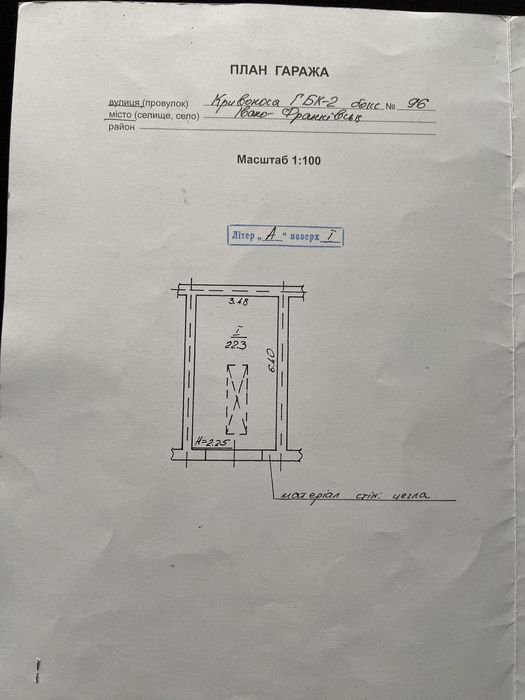 ПЛАН ГАРАЖА
вулиця (провулок) Кривоноса ГБК-2 бокс № 96
місто (селище, село) Івано-Франківськ
район
Масштаб 1:100
Літер „А“ поверх І
3.48
І
22.3
6.40
H=2.25
матеріал стін: цегла